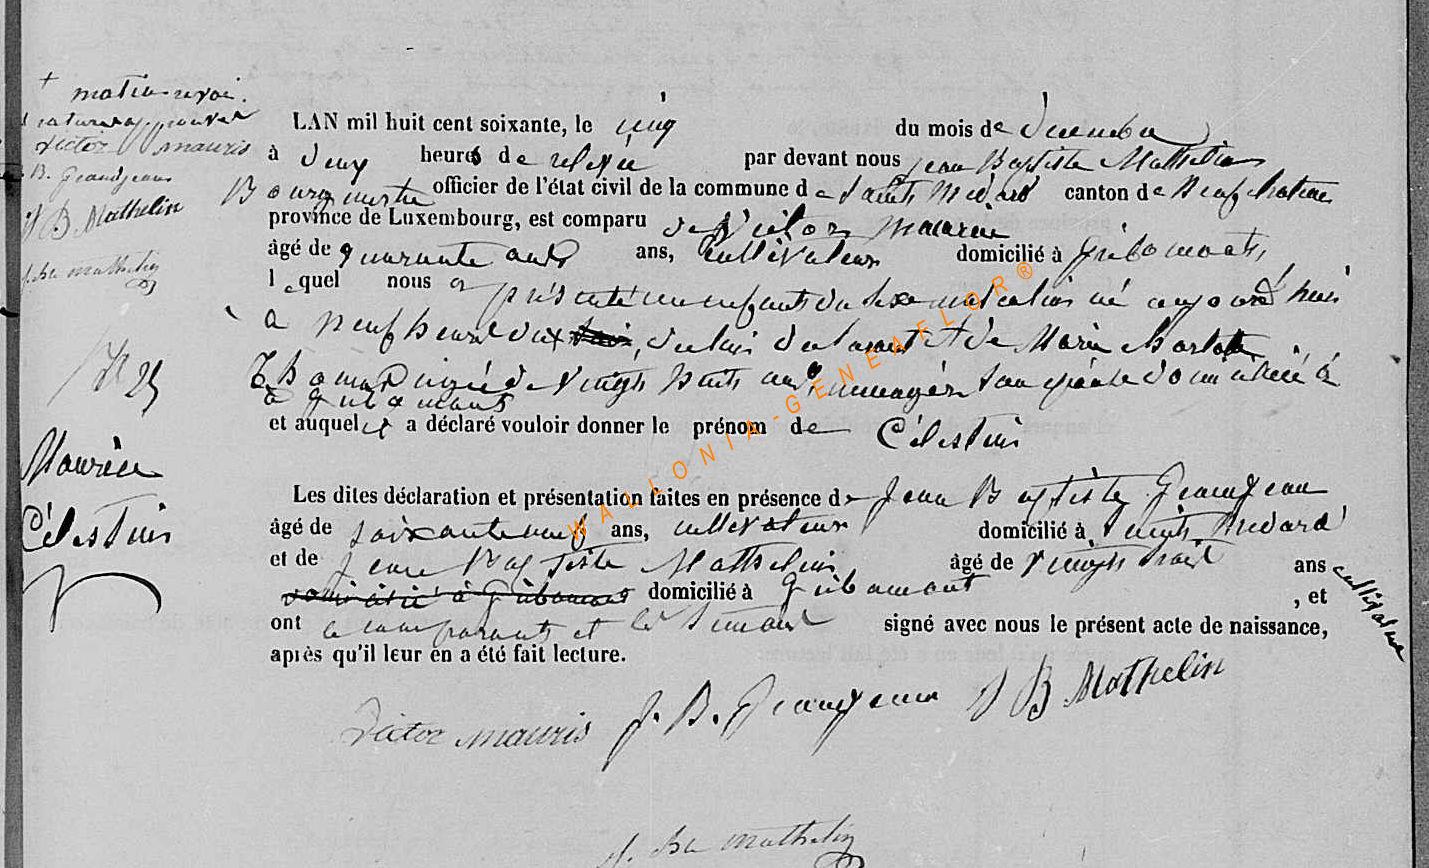 + matin
Victor mauris
B. Grandjean
J B Mathelin
J. Bte mathelin
N° 25
Maurice
Célestin
L'AN mil huit cent soixante, le cinq du mois de décembre
à deux heures de relevée par devant nous jean Baptiste Mathelin
Bourgmestre officier de l'état civil de la commune de Saint Médard canton de Neufchateau
province de Luxembourg, est comparu Victor Maurice
âgé de quarante ans, cultivateur domicilié à gribomont,
lequel nous a présenté un enfant du sexe masculin né aujourd'huis
a neuf heure du soir, de lui déclarant et de Marie Charlotte
Thomas agée de vingt huit ans ménagère son épouse domiciliée à
a gribomont
et auquel a déclaré vouloir donner le prénom de Célestin
Les dites déclaration et présentation faites en présence de Jean Baptiste Grandjean
âgé de soixante neuf ans, cultivateur domicilié à Saint Medard
et de Jean Baptiste Mathelin âgé de vingt trois ans cultivateur
domicilié à Gribomont domicilié à Gribomont , et
ont comparant et les temoins signé avec nous le présent acte de naissance,
après qu'il leur en a été fait lecture.
Victor mauris J. B. Grandjean J B Mathelin
J. Bte mathelin
WALLONIA-GENEAFLOR®